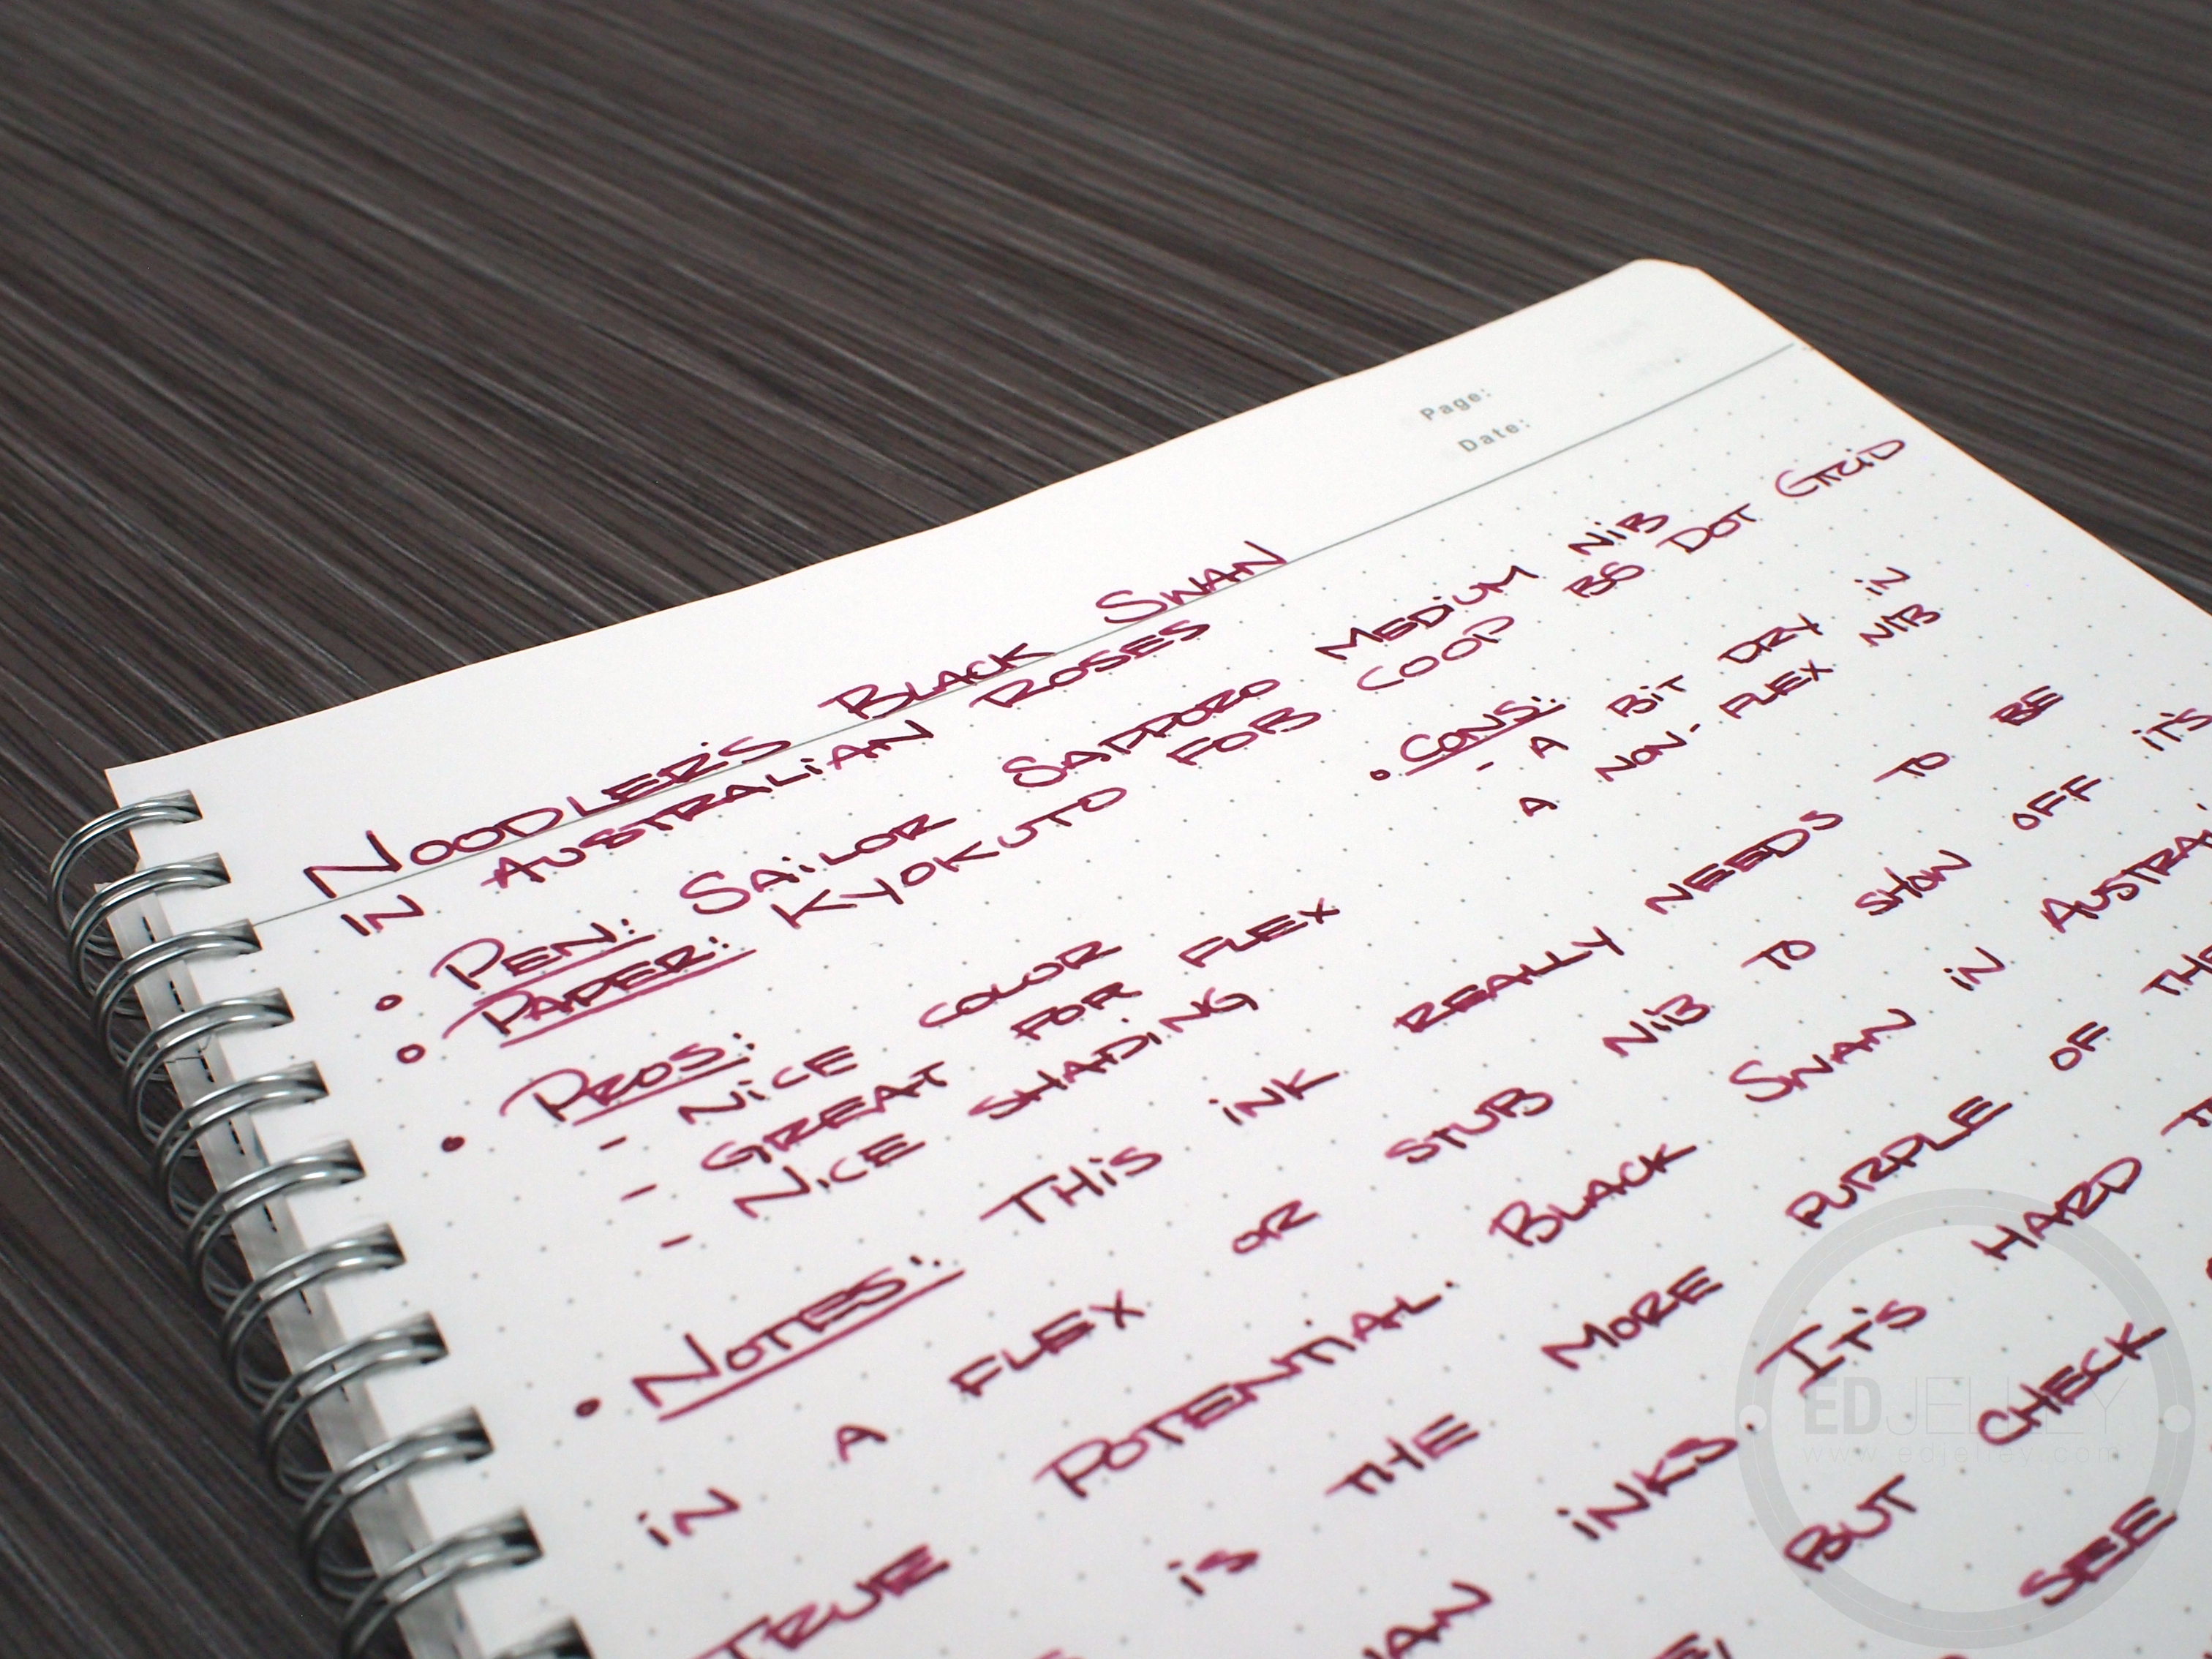 Page:
Date:
NOODLER'S BLACK SWAN
IN AUSTRALIAN ROSES
• PEN: SAILOR SAPPORO MEDIUM NIB
• PAPER: KYOKUTO FOB COOP B5 DOT GRID
• PROS:
- NICE COLOR
- GREAT FOR FLEX
- NICE SHADING
• CONS:
- A BIT DRY IN
A NON-FLEX NIB
• NOTES: THIS INK REALLY NEEDS TO BE
IN A FLEX OR STUB NIB TO SHOW OFF IT'S
TRUE POTENTIAL. BLACK SWAN IN
IS THE MORE PURPLE OF THE
INKS. IT'S HARD
BUT CHECK
SEE
EDJELLEY
www.edjelley.com